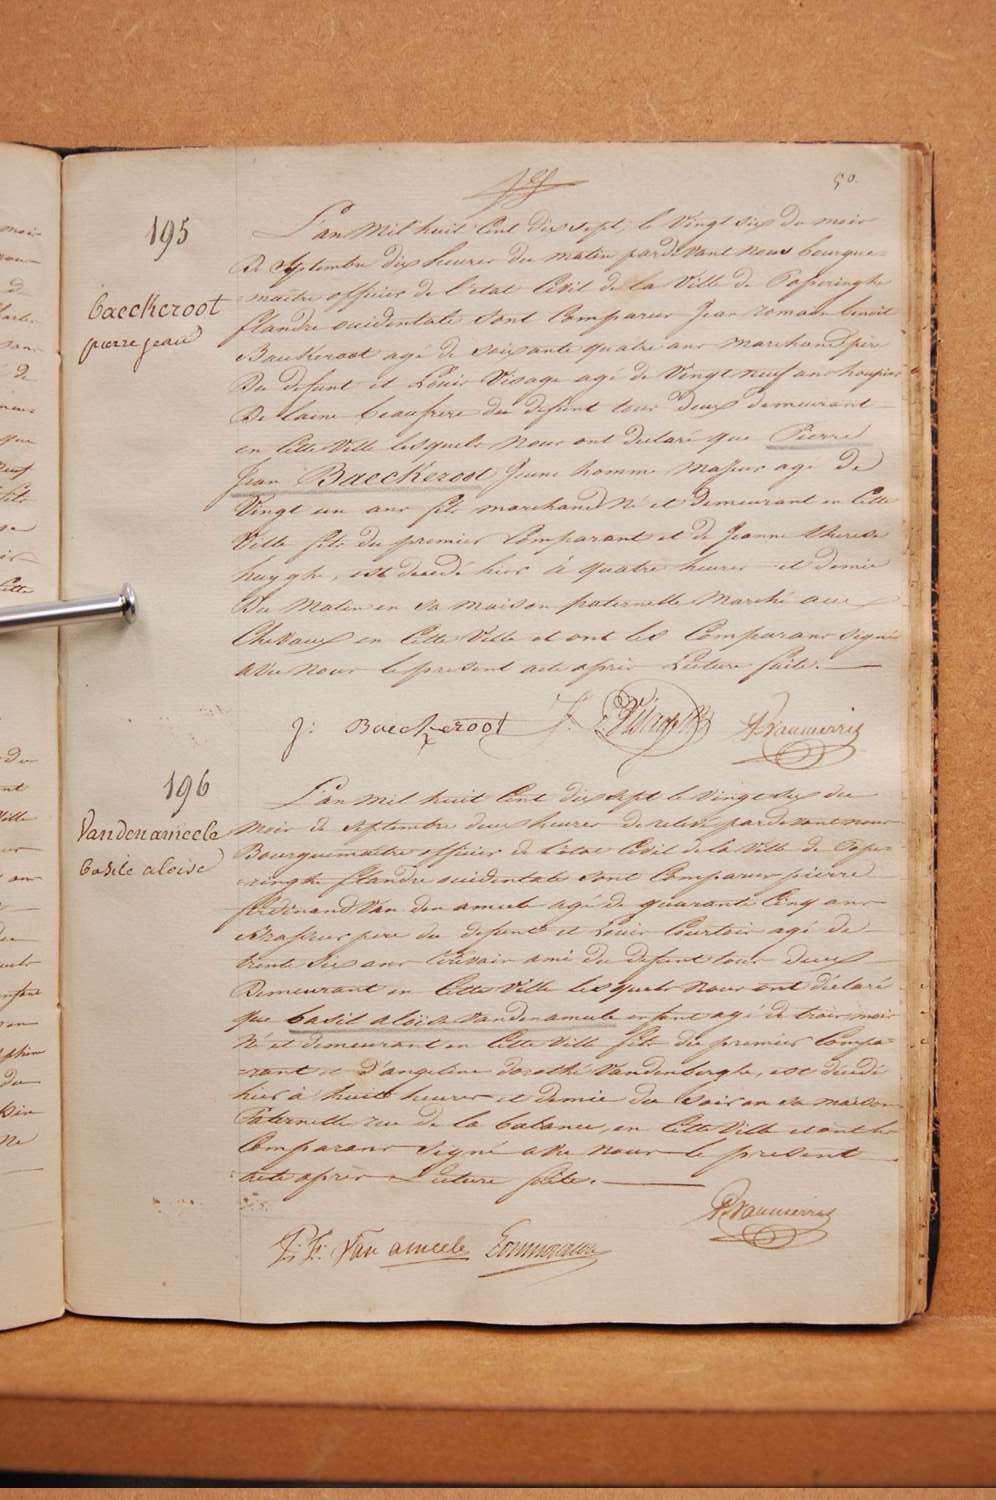 50.
195
L'an Mil huit Cent dix sept, le Vingt six du mois
De Septembre dix heures du matin pardevant nous bourgue=
=maître officier de l'etat Civil de la Ville de Poperinghe
Baeckeroot
flandre occidentale sont Comparus Jean romain benoit
pierre jean
Baeckeroot agé de soixante quatre ans marchand père
Du defunt et Louis Visage agé de Vingt neuf ans houpier
De laine beaufrere du defunt tous deux demeurant
en Cette Ville lesquels Nous ont declaré que Pierre
Jean Baeckeroot Jeune homme Majeur agé de
Vingt un ans fils marchand Né et demeurant en Cette
Ville fils du premier Comparant et de Jeanne therese
huyghe, est decedé hier à quatre heures et demie
Du Matin en sa maison paternelle Marché aux
Chevaux en Cette Ville et ont les Comparans signé
avec nous le present acte après Lecture faite.
J: Baeckeroot
196
L'an Mil huit Cent dix sept le vingt six du
Vandenameele
mois de Septembre deux heures de relevé pardevant nous
Basile aloise
Bourguemaître officier de l'état Civil de la Ville de Pope=
=ringhe flandre occidentale sont Comparus pierre
ferdinand Van den ameele agé de quarante Cinq ans
Brasseur pere du defunt et Louis Courtois agé de
trente six ans ami du defunt tous deux
Demeurant en Cette Ville lesquels nous ont déclaré
que basil aloïse vandenameele enfant agé de trois mois
Né et demeurant en Cette Ville fils du premier Compa=
=rant et d'angeline dorothé Vandenberghe, est décedé
hier à huit heures et demie du soir en sa maison
Paternelle rue de la balance, en Cette Ville et ont les
Comparans signé avec nous le present
acte après Lecture faite.
P: F: Van ameele